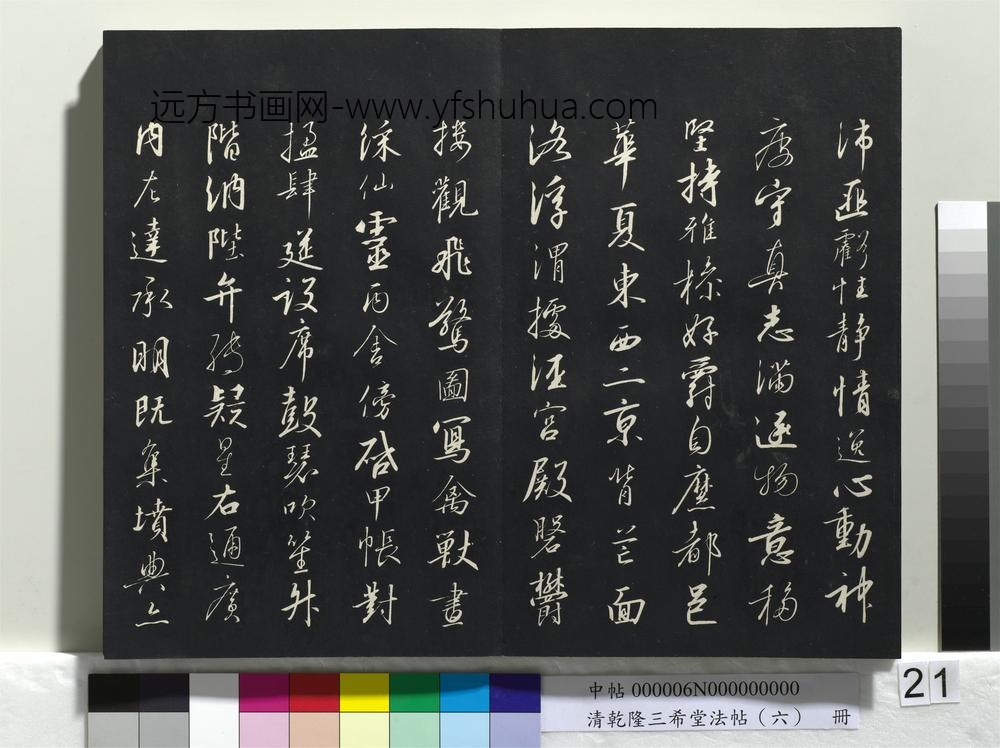 远方书画网-www.yfshuhua.com
沛匪虧性静情逸心動神
疲守真志滿逐物意移
堅持雅操好爵自縻都邑
華夏東西二京背芒面
洛浮渭據涇宮殿磐鬱
楼觀飛驚圖寫禽獸畫
綵仙靈丙舍傍啓甲帳對
楹肆筵設席鼓瑟吹笙升
階納陛弁轉疑星右通廣
内左達承明既集墳典亦
中帖 000006N000000000
清乾隆三希堂法帖（六） 冊
21